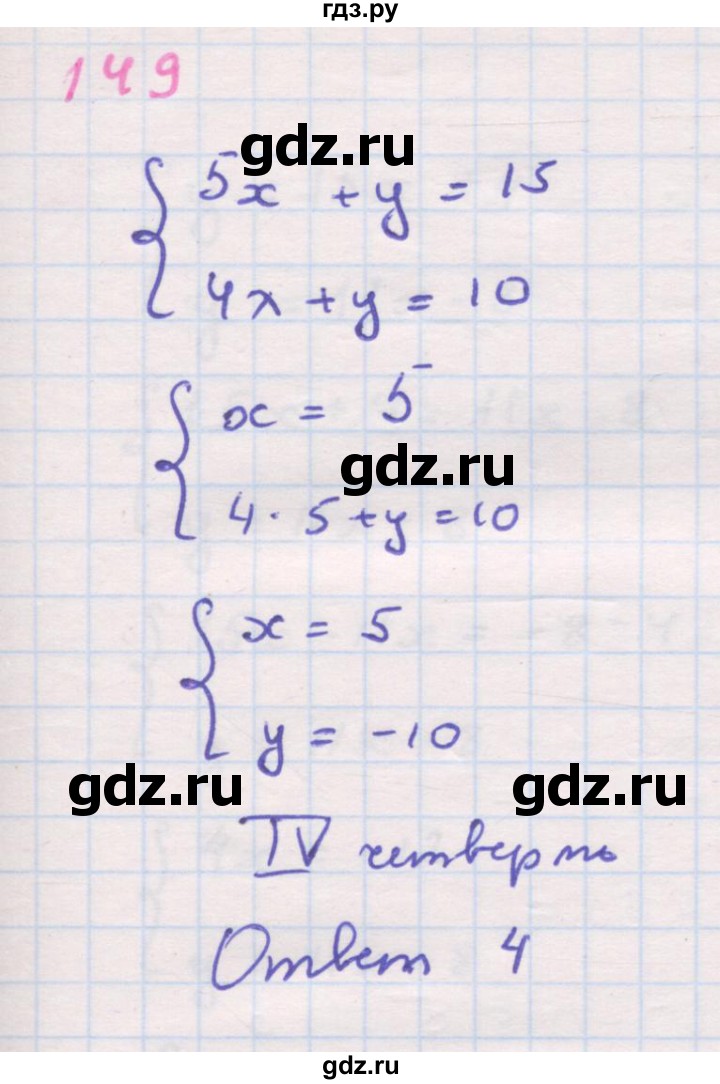 гдз.ру
149
gdz.ru
5x + y = 15
4x + y = 10
x = 5
gdz.ru
4 · 5 + y = 10
x = 5
y = -10
gdz.ru gdz.ru
IV четверть
Ответ 4
gdz.ru